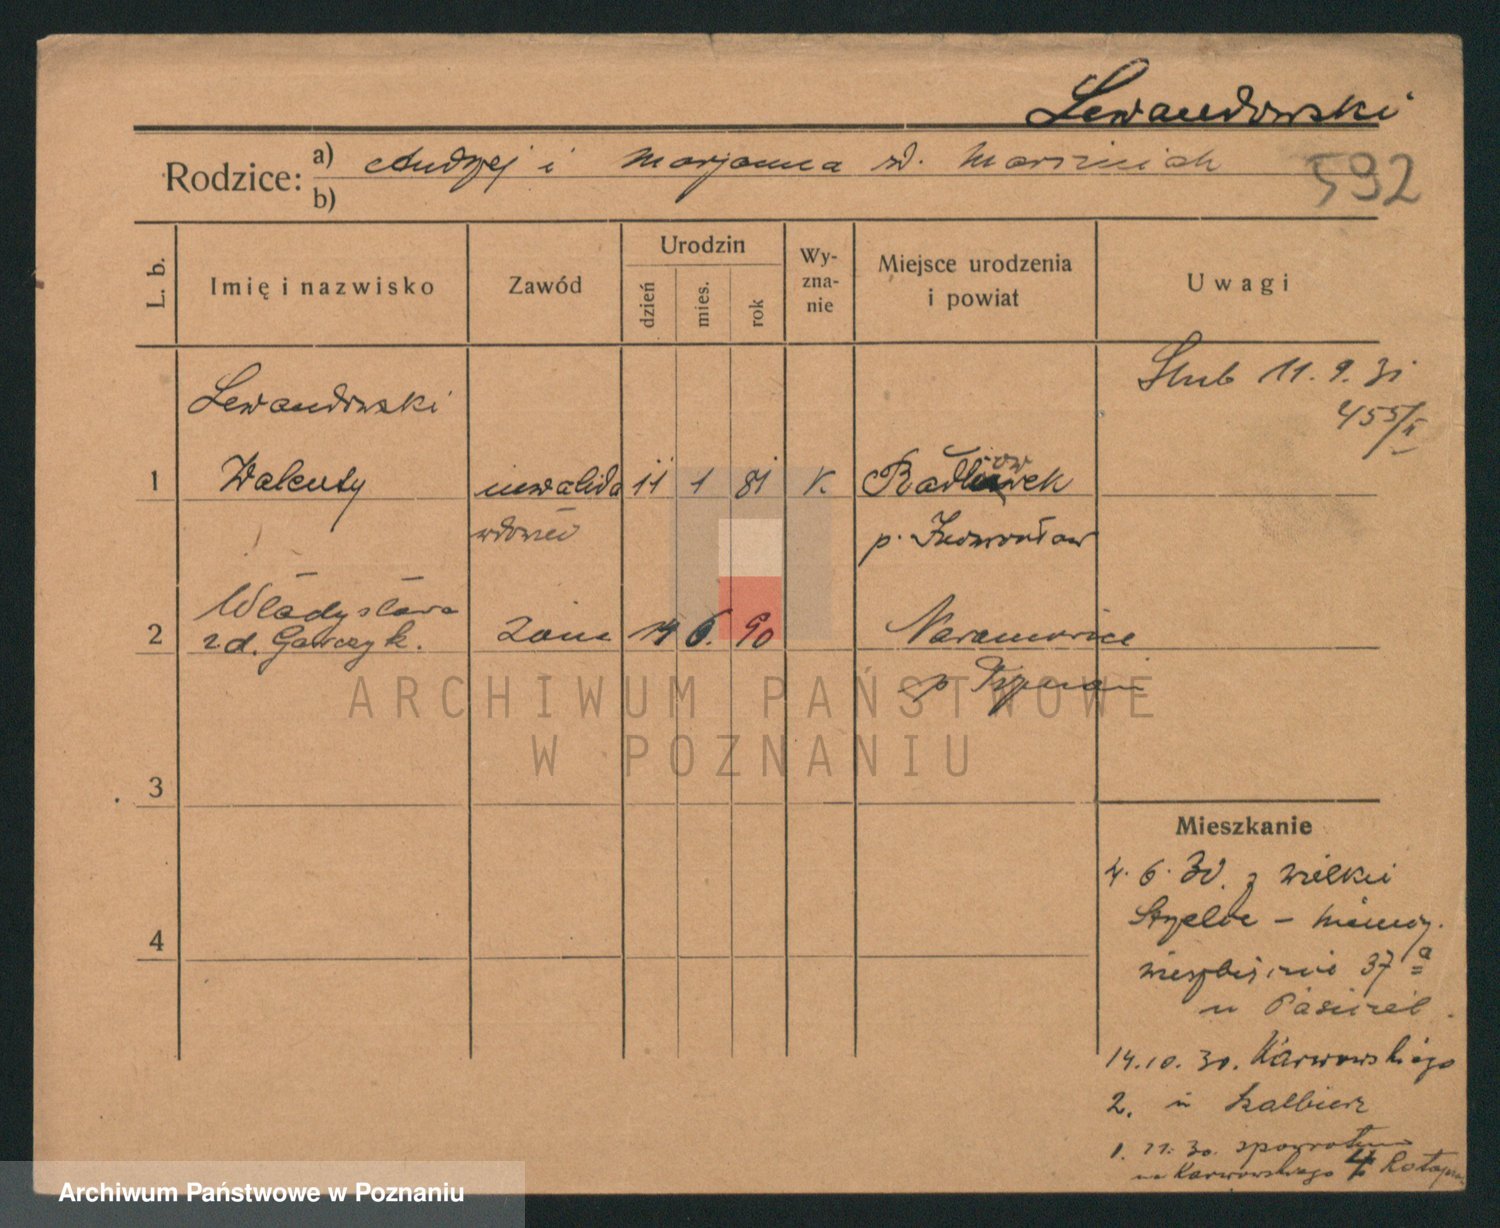 Lewandowski
592
Rodzice: a) Andrzej i Marjanna zd. Marciniak
b)
L. b.
Imię i nazwisko
Zawód
Urodzin
dzień
mies.
rok
Wy-
zna-
nie
Miejsce urodzenia
i powiat
Uwagi
Ślub 11. 9. 31
455/II
Lewandowski
1 Walenty inwalida 11 1 81 k. Radłówek
wdowiec p. Inowrocław
Władysława
2 zd. Gawczyk. żona 14 6. 90 Naramowice
p. Poznań
3
4
Mieszkanie
4. 6. 30. z Wielkie
Strzelce - Niemcy.
37 a
u
14.10. 30. Karwowskiego
2. u
1. 11. 30. spowrotem
na Karwowskiego 4
ARCHIWUM PAŃSTWOWE
W POZNANIU
Archiwum Państwowe w Poznaniu